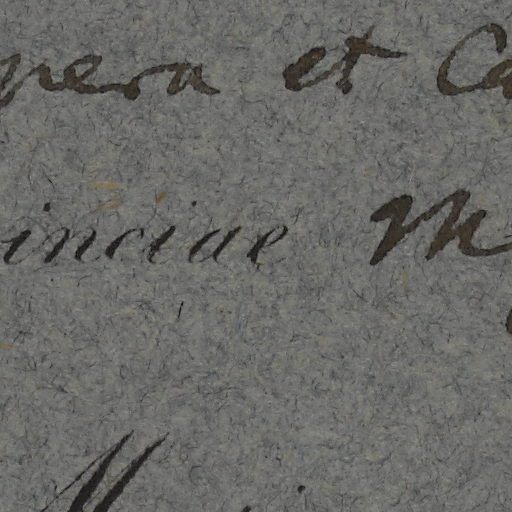 pera et Ca
inciae M